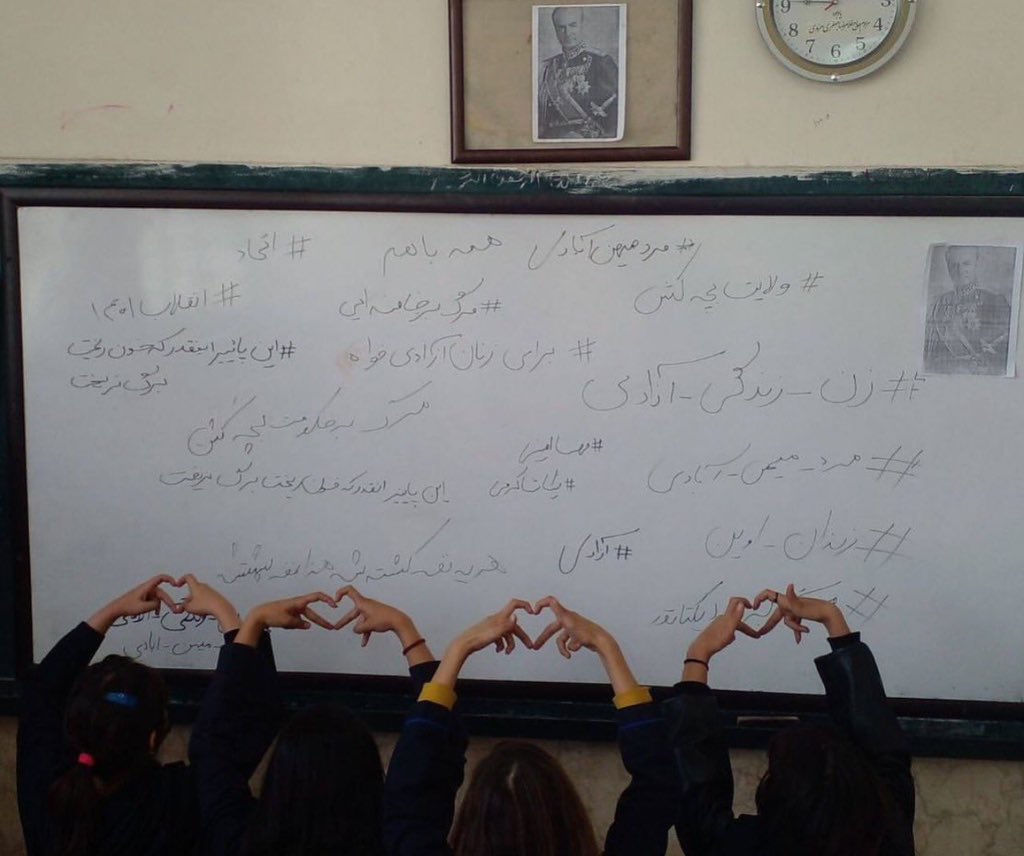 # اتحاد
همه با هم
# مرد میهن آبادی
# ولایت بچه کش
# مرگ بر خامنه ایی
# انقلاب ۱۴۰۱
# برای زنان آزادی خواه
# این پاییز انقدر که خون ریخت
برگ نریخت
# زن - زندگی - آزادی
مرگ بر حکومت بچه کش
# مهسا امینی
# مرد - میهن - آبادی
این پاییز انقدر که خون ریخت برگ نریخت
# زندان - اوین
# آزادی
هر یه نفر کشته شه هزار نفر پشتشه
# دیکتاتور
میهن - آبادی
9
3
8
4
7
6
5